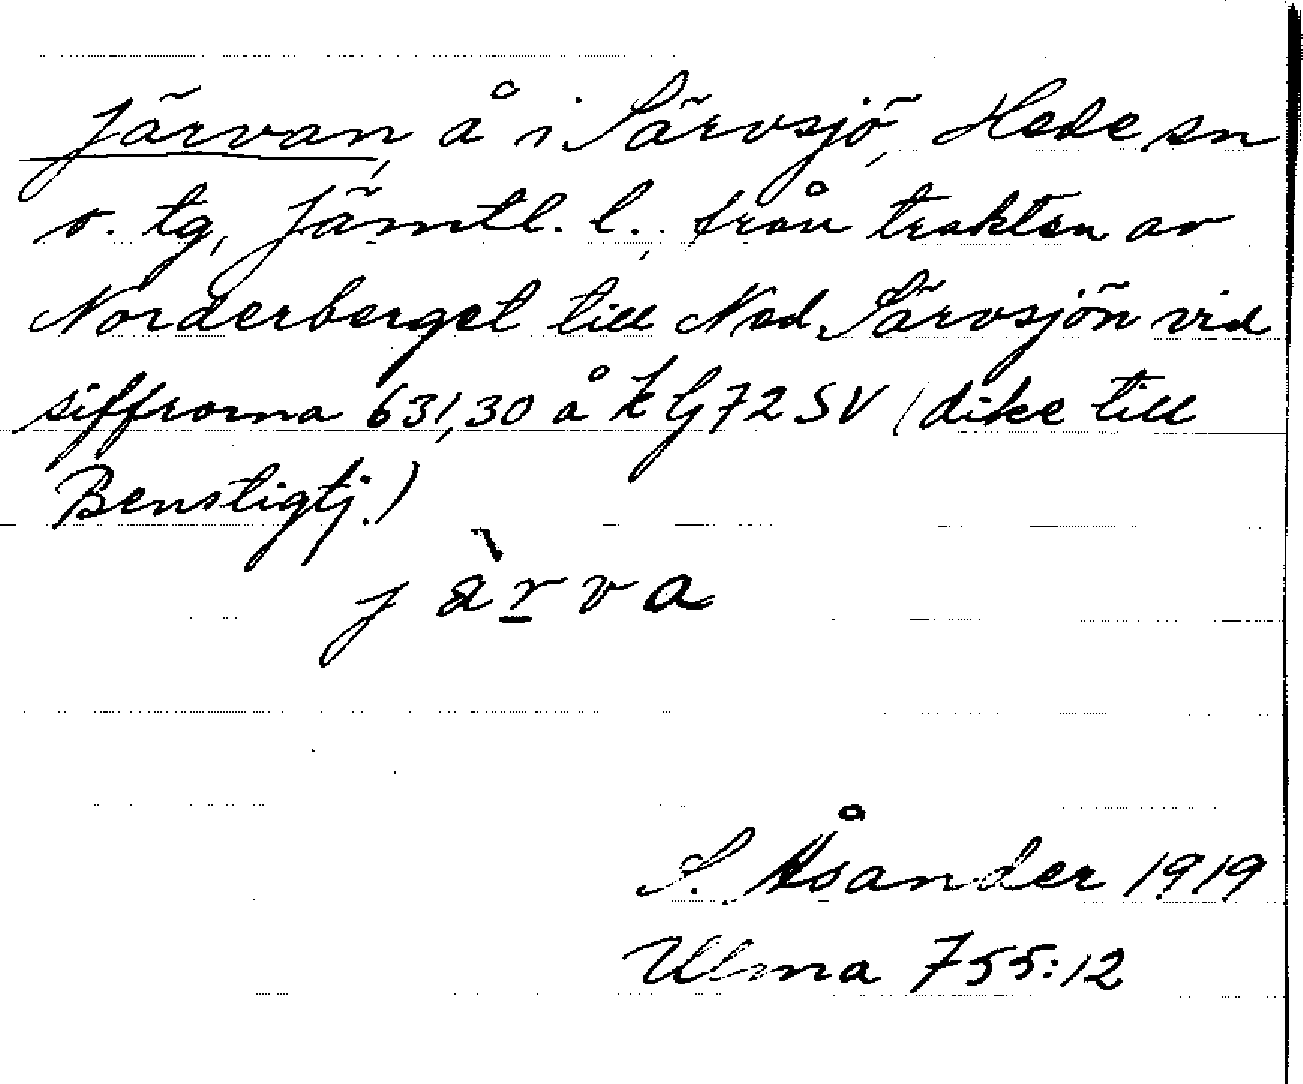 Järvan, å i Särvsjö, Hede sn
o. tg, Jämtl. l., från trakten av
Norderberget till Ned. Särvsjön vid
siffrorna 631,30 å k G 72 SV (dike till
Benstigtj.)
j ä̀ r v a
S. Åsander 1919
Ulma 755:12